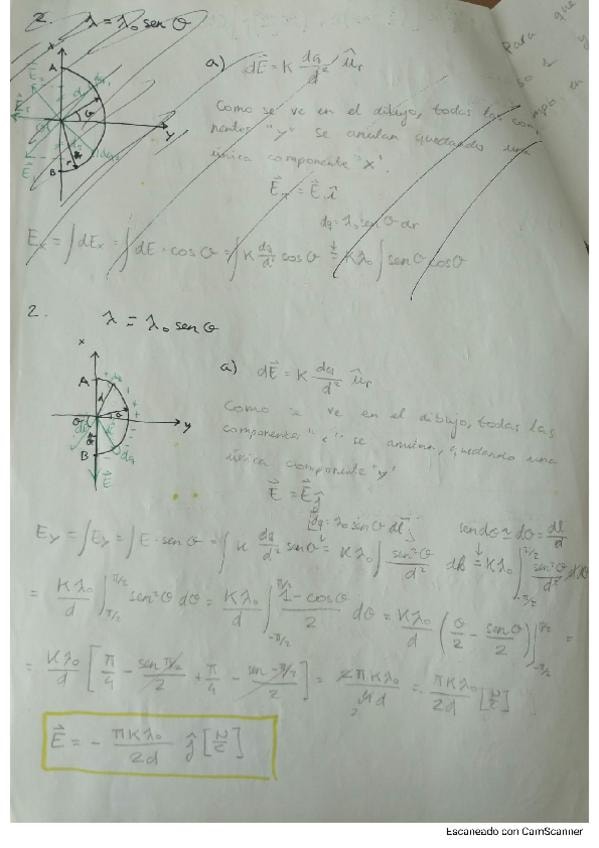 2. λ = λ₀ sen θ
a) dE⃗ = K dq/d² û_r
Como se ve en el dibujo, todas las compo
nentes "y" se anulan quedando una
única componente "x".
E⃗x = E⃗ . î
dq = λ₀ sen θ dr
Ex = ∫dEx = ∫dE · cos θ = ∫K dq/d² cos θ = Kλ₀ ∫sen θ cos θ
2. λ = λ₀ sen θ
a) dE⃗ = K dq/d² û_r
Como se ve en el dibujo, todas las
componentes "x" se anulan, quedando una
única componente "y"
E⃗ = E⃗ ĵ
[dq = λ₀ sen θ dl] sen dθ ≃ dθ = dl/d
Ey = ∫Ey = ∫E · sen θ = ∫K dq/d² sen θ = Kλ₀ ∫ sen²θ/d² dl = Kλ₀ ∫_{-π/2}^{π/2} sen²θ/d² d dθ
= Kλ₀/d ∫_{-π/2}^{π/2} sen²θ dθ = Kλ₀/d ∫_{-π/2}^{π/2} (1 - cos θ)/2 dθ = Kλ₀/d (θ/2 - sen θ/2)|_{-π/2}^{π/2} =
= Kλ₀/d [π/4 - sen π/2 /2 + π/4 - sen -π/2 /2] = 2πKλ₀/4d = πKλ₀/2d [N/C]
E⃗ = - πKλ₀/2d ĵ [N/C]
Para que
Escaneado con CamScanner